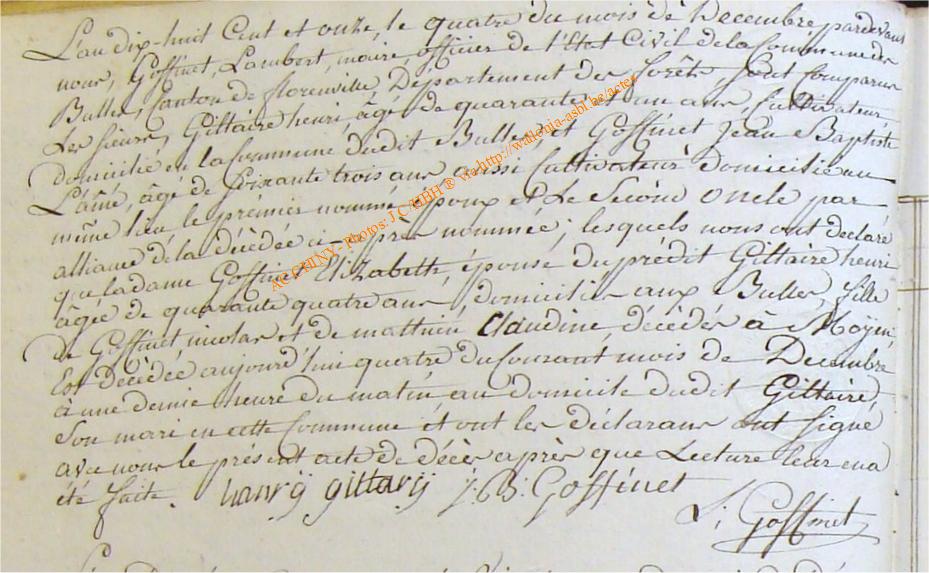 L'an dix-huit Cent et onze, le quatre du mois de Decembre, pardevant
nous, Goffinet, Lambert, maire, officier de l'Etat Civil de la Commune des
Bulles, Canton de florenville, Département des forêts, sont Comparus
Les Sieurs, Giltaire henri, âgé de quarante et un ans, Cultivateur,
domicilié en la Commune dudit Bulles, et Goffinet Jean Baptiste
L'ainé, âgé de soixante trois ans aussi Cultivateur domicilié au
même lieu le prémier nommé Epoux et Le Second Oncle par
alliance de la décédée ci-après nommée; lesquels nous ont déclaré
que, la dame Goffinet Elizabeth, épouse du prédit Giltaire henri
âgée de quarante quatre ans, domiciliée aux Bulles, fille
de Goffinet nicolas et de mathieu Claudine décédés à Moyen,
Est décédée aujourd'hui quatre du Courant mois de Decembre
à une demie heure du matin au domicile dudit Giltaire,
Son mari en cette Commune et ont les déclarans ont signé
avec nous le présent acte de décès après que Lecture leur en a
été faite. hanrÿ giltarÿ J: B: Goffinet
L; Goffinet
ACCHINY - Photos: J.C. HBH ® via http://wallonia-asbl.be/actes